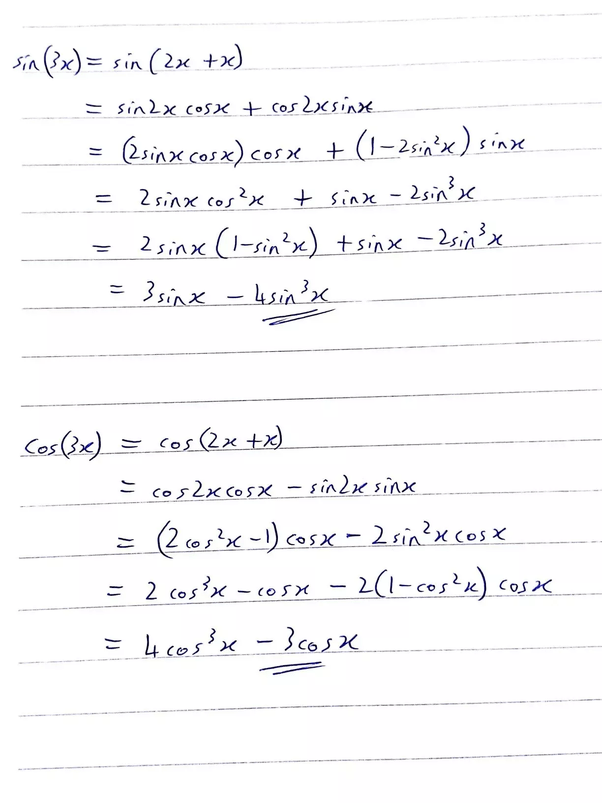 sin(3x) = sin(2x + x)
= sin2x cosx + cos2x sinx
= (2sinx cosx) cosx + (1 - 2sin²x) sinx
= 2sinx cos²x + sinx - 2sin³x
= 2sinx (1 - sin²x) + sinx - 2sin³x
= 3sinx - 4sin³x
cos(3x) = cos(2x + x)
= cos2x cosx - sin2x sinx
= (2cos²x - 1) cosx - 2sin²x cosx
= 2cos³x - cosx - 2(1 - cos²x) cosx
= 4cos³x - 3cosx